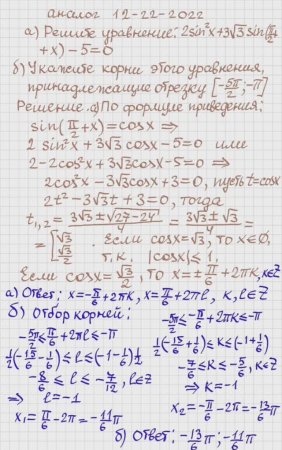 аналог 12-22-2022
а) Решите уравнение: 2sin²x+3√3 sin(π/2
+x)-5=0
б) Укажите корни этого уравнения,
принадлежащие отрезку [-5π/2;-π]
Решение. а) По формуле приведения:
sin(π/2+x)=cosx ⇒
2 sin²x+3√3 cosx-5=0 или
2-2cos²x+3√3cosx-5=0 ⇒
2cos²x-3√3cosx+3=0, пусть t=cosx
2t²-3√3t+3=0, тогда
t₁,₂=(3√3±√(27-24))/4=(3√3±√3)/4=
=[√3; √3/2. Если cosx=√3, то x∈∅,
т.к. |cosx|≤1.
Если cosx=√3/2, то x=±π/6+2πk, k∈Z
а) Ответ: x=-π/6+2πk, x=π/6+2πl, k,l∈Z
б) Отбор корней:
-5π/2≤π/6+2πl≤-π
-5π/2≤-π/6+2πk≤-π
1/2(-15/6-1/6)≤l≤(-1-1/6)1/2
1/2(-15/6+1/6)≤k≤(-1+1/6)
-8/6≤l≤-7/12, l∈Z
-7/6≤k≤-5/6, k∈Z
⇒ l=-1
⇒ k=-1
x₁=π/6-2π=-11/6π
x₂=-π/6-2π=-13/6π
б) Ответ: -13/6π; -11/6π